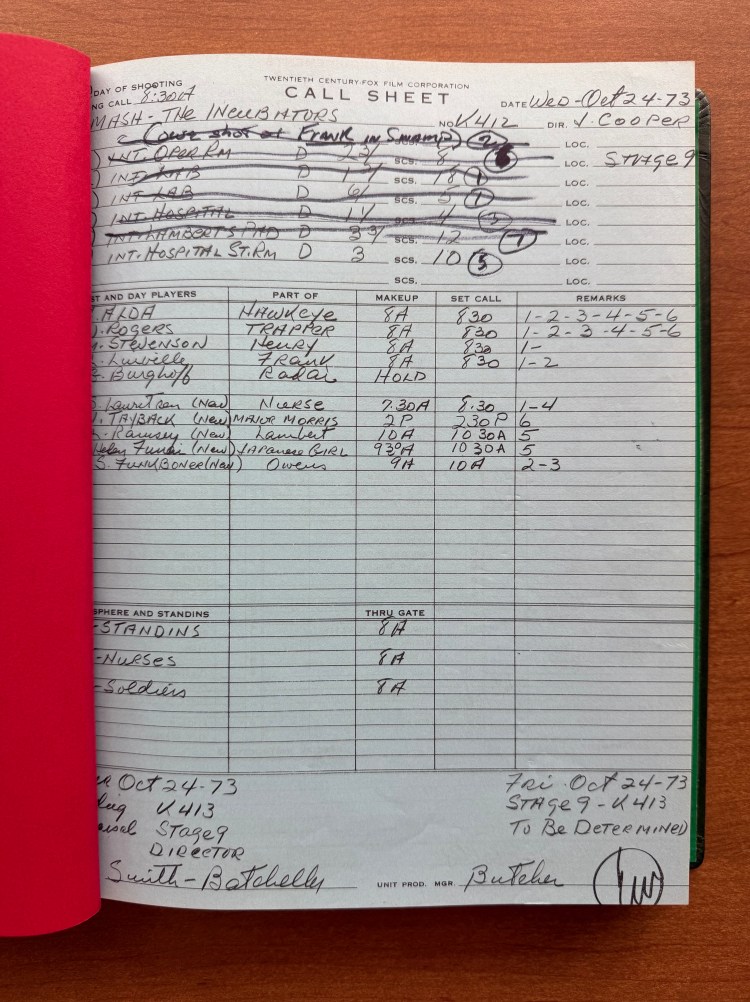 DAY OF SHOOTING
TWENTIETH CENTURY-FOX FILM CORPORATION
NG CALL 8:30A
CALL SHEET
DATE Wed-Oct 24-73
MASH-The Incubators
NO. K412 DIR. J. COOPER
shot of FRANK IN SWAMP) 2 LOC.
INT. OPER RM D SCS. 8 LOC. STAGE 9
INT. LAB D SCS. 18 1 LOC.
INT LAB D SCS. 5 1 LOC.
INT. HOSPITAL D SCS. 4 LOC.
INT. LAMBERTS PAD D SCS. 12 LOC.
INT. HOSPITAL ST. RM D 3 SCS. 10 5 LOC.
SCS. LOC.
ST AND DAY PLAYERS PART OF MAKEUP SET CALL REMARKS
ALDA HAWKEYE 8A 830 1-2-3-4-5-6
ROGERS TRAPPER 8A 830 1-2-3-4-5-6
STEVENSON Henry 8A 830 1-
Linville FRANK 8A 830 1-2
Burghoff Radar HOLD
(New) Nurse 7.30A 8.30 1-4
TAYBACK (New) MAJOR MORRIS 2P 230P 6
Ramsey (New) Lambert 10A 1030A 5
Helen Funai (New) JAPANESE GIRL 930A 1030A 5
S. FUNKBONER (New) Owens 9A 10A 2-3
SPHERE AND STANDINS THRU GATE
-STANDINS 8A
-Nurses 8A
-Soldiers 8A
Oct 24-73
Fri Oct 24-73
K413
STAGE 9-K413
Stage 9
To Be DETERMINED
DIRECTOR
Smith-Batchelly UNIT PROD. MGR. Butcher